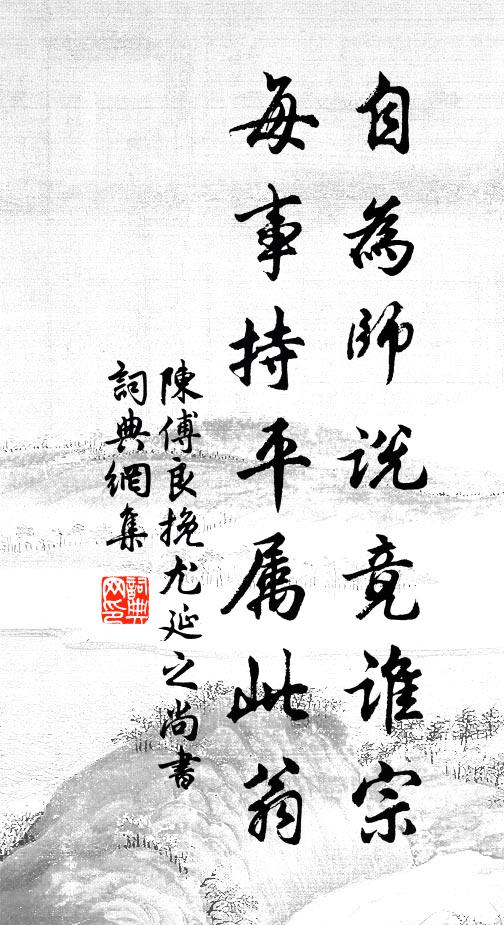 自為師說竟誰宗
每事持平属此翁
陳傅良挽尤延之尚書
詞典網集
詞典
网印